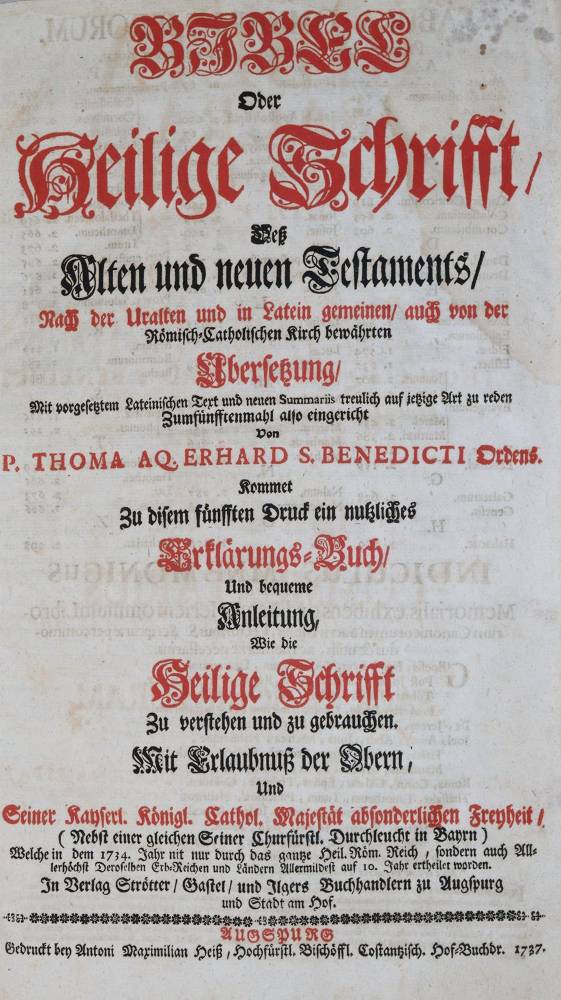 BIBEL
Oder
Heilige Schrifft/
Deß
Alten und neuen Testaments/
Nach der Uralten und in Latein gemeinen/ auch von der
Römisch-Catholischen Kirch bewährten
Ubersetzung/
Mit vorgesetztem Lateinischen Text und neuen Summariis treulich auf jetzige Art zu reden
Zumfünfftenmahl also eingericht
Von
P. THOMA AQ. ERHARD S. BENEDICTI Ordens.
Kommet
Zu disem fünfften Druck ein nutzliches
Erklärungs-Buch/
Und bequeme
Anleitung,
Wie die
Heilige Schrifft
Zu verstehen und zu gebrauchen.
Mit Erlaubnuß der Obern,
Und
Seiner Kayserl. Königl. Cathol. Majestät absonderlichen Freyheit/
(Nebst einer gleichen Seiner Churfürstl. Durchleucht in Bayrn)
Welche in dem 1734. Jahr nit nur durch das gantze Heil. Röm. Reich, sondern auch All-
lerhöchst Deroselben Erb-Reichen und Ländern Allermildest auf 10. Jahr ertheilet worden.
In Verlag Strötter/ Gastel/ und Ilgers Buchhandlern zu Augspurg
und Stadt am Hof.
AUGSPURG
Gedruckt bey Antoni Maximilian Heiß, Hochfürstl. Bischöffl. Costantzisch. Hof-Buchdr. 1737.